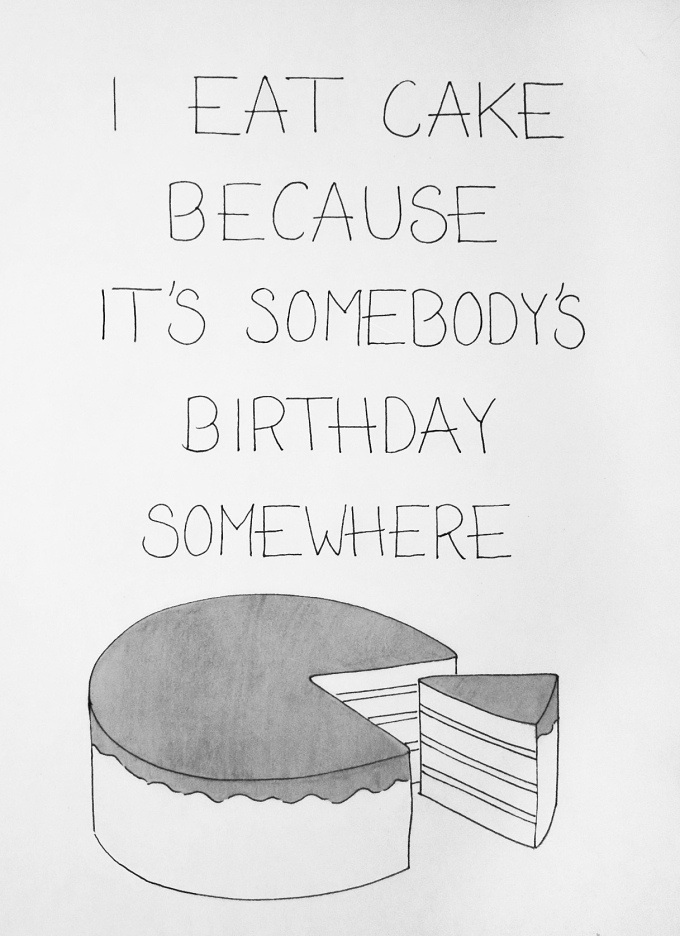 I EAT CAKE
BECAUSE
IT'S SOMEBODY'S
BIRTHDAY
SOMEWHERE